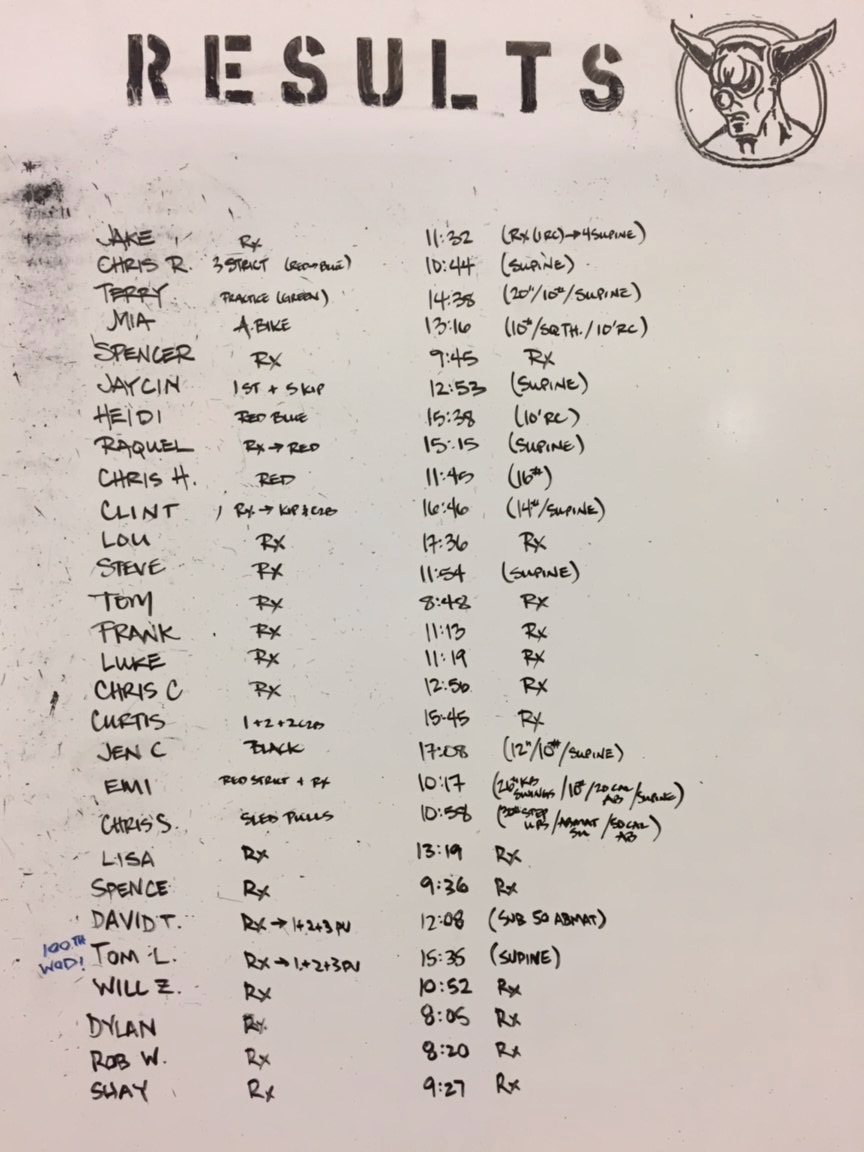 RESULTS
JAKE Rx 11:32 (Rx (1RC)→4 SUPINE)
CHRIS R. 3 STRICT (RED→BLUE) 10:44 (SUPINE)
TERRY PRACTICE (GREEN) 14:38 (20"/10#/SUPINE)
MIA A.BIKE 13:16 (10#/SQ TH./10'RC)
SPENCER Rx 9:45 Rx
JAYCIN 1 ST + 5 KIP 12:53 (SUPINE)
HEIDI RED BLUE 15:38 (10'RC)
RAQUEL Rx→RED 15:15 (SUPINE)
CHRIS H. RED 11:45 (16#)
CLINT Rx→KIP & C2B 16:46 (14#/SUPINE)
LOU Rx 17:36 Rx
STEVE Rx 11:54 (SUPINE)
TOM Rx 8:48 Rx
FRANK Rx 11:13 Rx
LUKE Rx 11:19 Rx
CHRIS C Rx 12:56 Rx
CURTIS 1+2+2C2B 15:45 Rx
JEN C BLACK 17:08 (12"/10#/SUPINE)
EMI RED STRICT + Rx 10:17 (26# KB SWINGS/10#/20 CAL AB/SUPINE)
CHRIS S. SLED PULLS 10:58 STEP UPS/ABMAT SU/50 CAL AB)
LISA Rx 13:19 Rx
SPENCE Rx 9:36 Rx
DAVID T. Rx→1+2+3 PU 12:08 (SUB 50 ABMAT)
100TH WOD! TOM L. Rx→1+2+3 PU 15:35 (SUPINE)
WILL Z. Rx 10:52 Rx
DYLAN Rx 8:05 Rx
ROB W. Rx 8:20 Rx
SHAY Rx 9:27 Rx